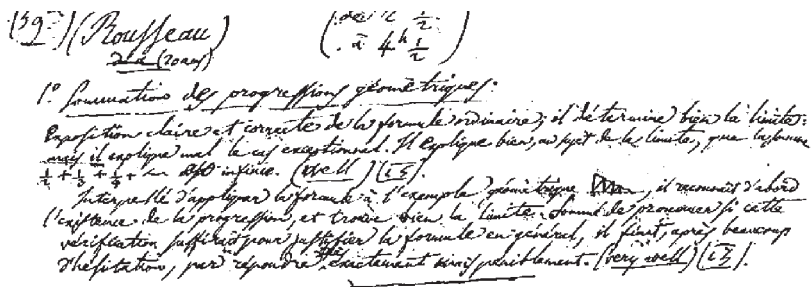 (59) (Rousseau) (de 2 1/2
(20 ans) à 4h 1/2)
1.º Sommation des progressions géométriques:
Exposition claire et correcte de la formule ordinaire; il détermine bien la limite:
mais il explique mal le cas exceptionnel. Il explique bien, au sujet de la limite, que la somme
1/2 + 1/3 + 1/4 + ... est infinie. (well) (15).
Interpellé d'appliquer la formule à l'exemple géométrique, il reconnait d'abord
l'existence de la progression, et trouve bien la limite. Sommé de prononcer si cette
vérification suffirait pour justifier la formule en général, il finit, après beaucoup
d'hésitation, par répondre exactement mais péniblement. (very well) (15).